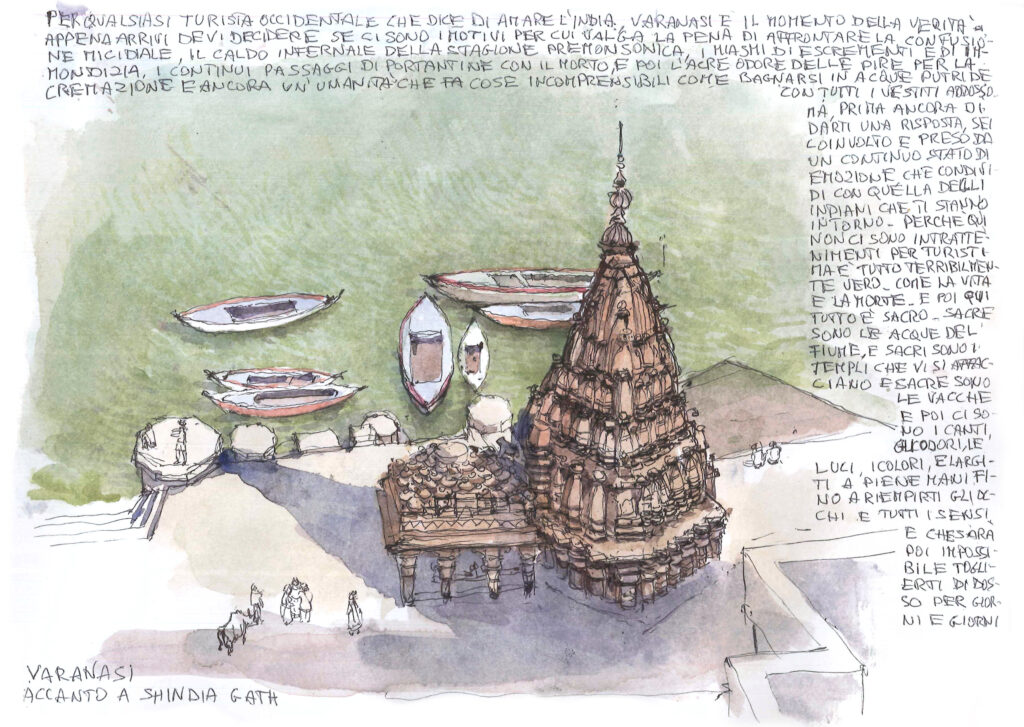 PER QUALSIASI TURISTA OCCIDENTALE CHE DICE DI AMARE L'INDIA, VARANASI E IL MOMENTO DELLA VERITA'
APPENA ARRIVI DEVI DECIDERE SE CI SONO I MOTIVI PER CUI VALGA LA PENA DI AFFRONTARE LA CONFUSIO-
NE MICIDIALE, IL CALDO INFERNALE DELLA STAGIONE PREMONSONICA, I MIASMI DI ESCREMENTI E DI IM-
MONDIZIA, I CONTINUI PASSAGGI DI PORTANTINE CON IL MORTO, E POI L'ACRE ODORE DELLE PIRE PER LA
CREMAZIONE E ANCORA UN'UMANITA' CHE FA COSE INCOMPRENSIBILI COME BAGNARSI IN ACQUE PUTRIDE
CON TUTTI I VESTITI ADDOSSO.
MA, PRIMA ANCORA DI
DARTI UNA RISPOSTA, SEI
COINVOLTO E PRESO DA
UN CONTINUO STATO DI
EMOZIONE CHE CONDIVI-
DI CON QUELLA DEGLI
INDIANI CHE TI STANNO
INTORNO - PERCHE QUI
NON CI SONO INTRATTE-
NIMENTI PER TURISTI
MA E' TUTTO TERRIBILMEN-
TE VERO - COME LA VITA
E LA MORTE - E POI QUI
TUTTO E' SACRO - SACRE
SONO LE ACQUE DEL
FIUME, E SACRI SONO I
TEMPLI CHE VI SI AFFAC-
CIANO E SACRE SONO
LE VACCHE
E POI CI SO-
NO I CANTI,
GLI ODORI, LE
LUCI, I COLORI, ELARGI-
TI A PIENE MANI FI-
NO A RIEMPIRTI GLI OC-
CHI E TUTTI I SENSI
E CHE SARA
POI IMPOSSI-
BILE TOGLI-
ERTI DI DOS-
SO PER GIOR-
NI E GIORNI
VARANASI
ACCANTO A SHINDIA GATH